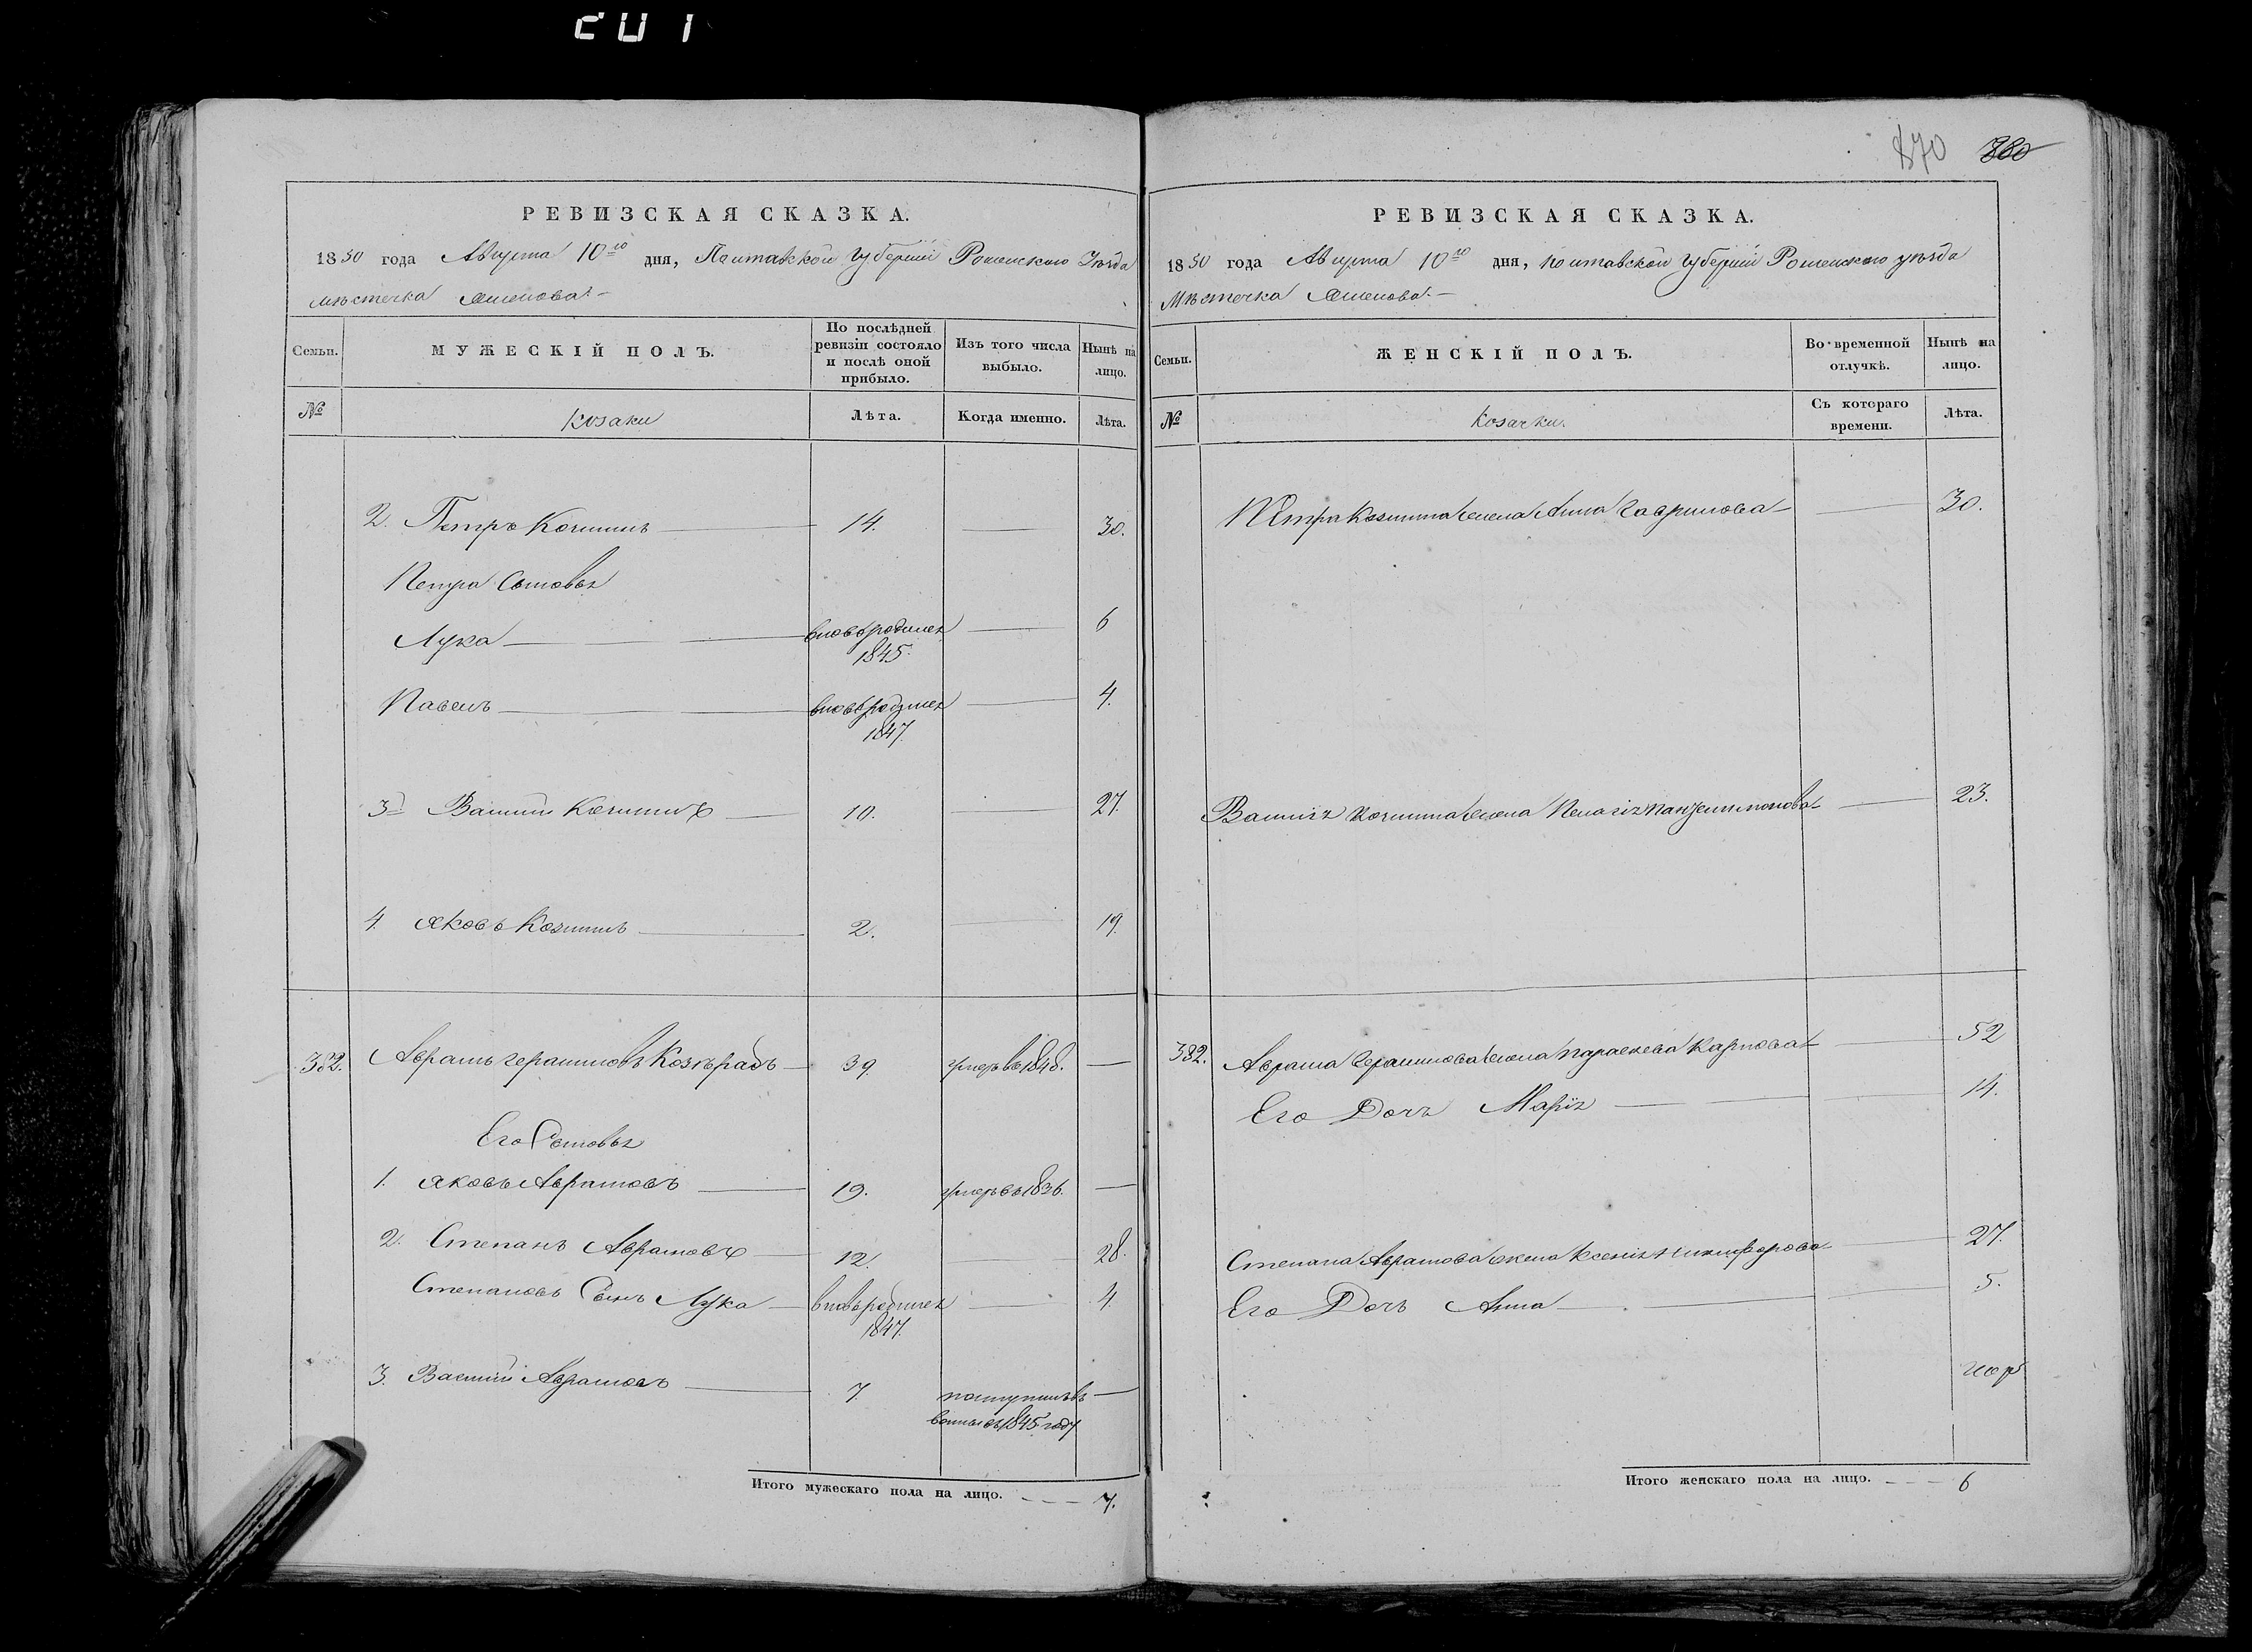 201
РЕВИЗСКАЯ СКАЗКА.
1850 года Августа 10го дня, Полтавской Губерніи Роменского Уѣзда
мѣстечка Смелова.
Семьи.
МУЖЕСКІЙ ПОЛЪ.
По послѣдней ревизіи состояло и послѣ оной прибыло.
Изъ того числа выбыло.
Нынѣ на лицо.
№
Козаки
Лѣта.
Когда именно.
Лѣта.
2. Петръ 14. 30.
Петра Сыновья
Лука вновьродился 1845. 6
Павелъ вновьродился 1847. 4.
3й Василий 10. 27.
4. Яковъ 2. 19.
382. Аврамъ Герасимовъ 39 умеръ в 1848.
Его Сыновья
1. Яковъ Аврамовъ 19. умеръ въ 1836.
2. Степанъ Аврамовъ 12. 28.
Степановъ Сынъ Лука вновьродился 1847. 4.
3. Василий Аврамовъ 7. поступилъ въ 1845 году
Итого мужескаго пола на лицо. 7.
870 380
РЕВИЗСКАЯ СКАЗКА.
1850 года Августа 10го дня, Полтавской Губерніи Роменского уѣзда
Мѣстечка Смелова.
Семьи.
ЖЕНСКІЙ ПОЛЪ.
Во временной отлучкѣ.
Нынѣ на лицо.
№
Козачки.
Съ котораго времени.
Лѣта.
Петра жена Анна Гаврилова 30.
Василия жена Пелагія Пантелимонова 23.
382. Аврама Герасимова жена Параскева Карпова 52
Его Дочь Марія 14.
Степана Аврамова жена Ксенія Никифорова 27.
Его Дочь Анна 5.
Итого женскаго пола на лицо. 6